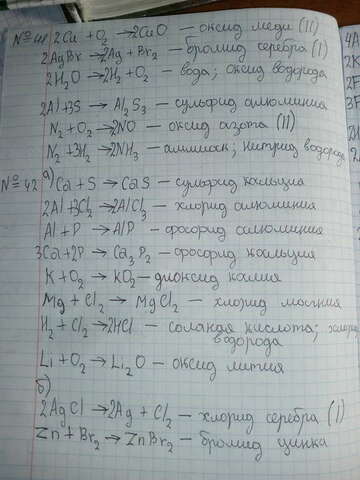 №41 2Cu + O₂ → 2CuO — оксид меди (II)
2AgBr → 2Ag + Br₂ — бромид серебра (I)
2H₂O → 2H₂ + O₂ — вода; оксид водорода
2Al + 3S → Al₂S₃ — сульфид алюминия
N₂ + O₂ → 2NO — оксид азота (II)
N₂ + 3H₂ → 2NH₃ — аммиак; нитрид водорода
№42 а) Ca + S → CaS — сульфид кальция
2Al + 3Cl₂ → 2AlCl₃ — хлорид алюминия
Al + P → AlP — фосфид алюминия
3Ca + 2P → Ca₃P₂ — фосфид кальция
K + O₂ → KO₂ — диоксид калия
Mg + Cl₂ → MgCl₂ — хлорид магния
H₂ + Cl₂ → 2HCl — соляная кислота;
водорода
Li + O₂ → Li₂O — оксид лития
б)
2AgCl → 2Ag + Cl₂ — хлорид серебра (I)
Zn + Br₂ → ZnBr₂ — бромид цинка